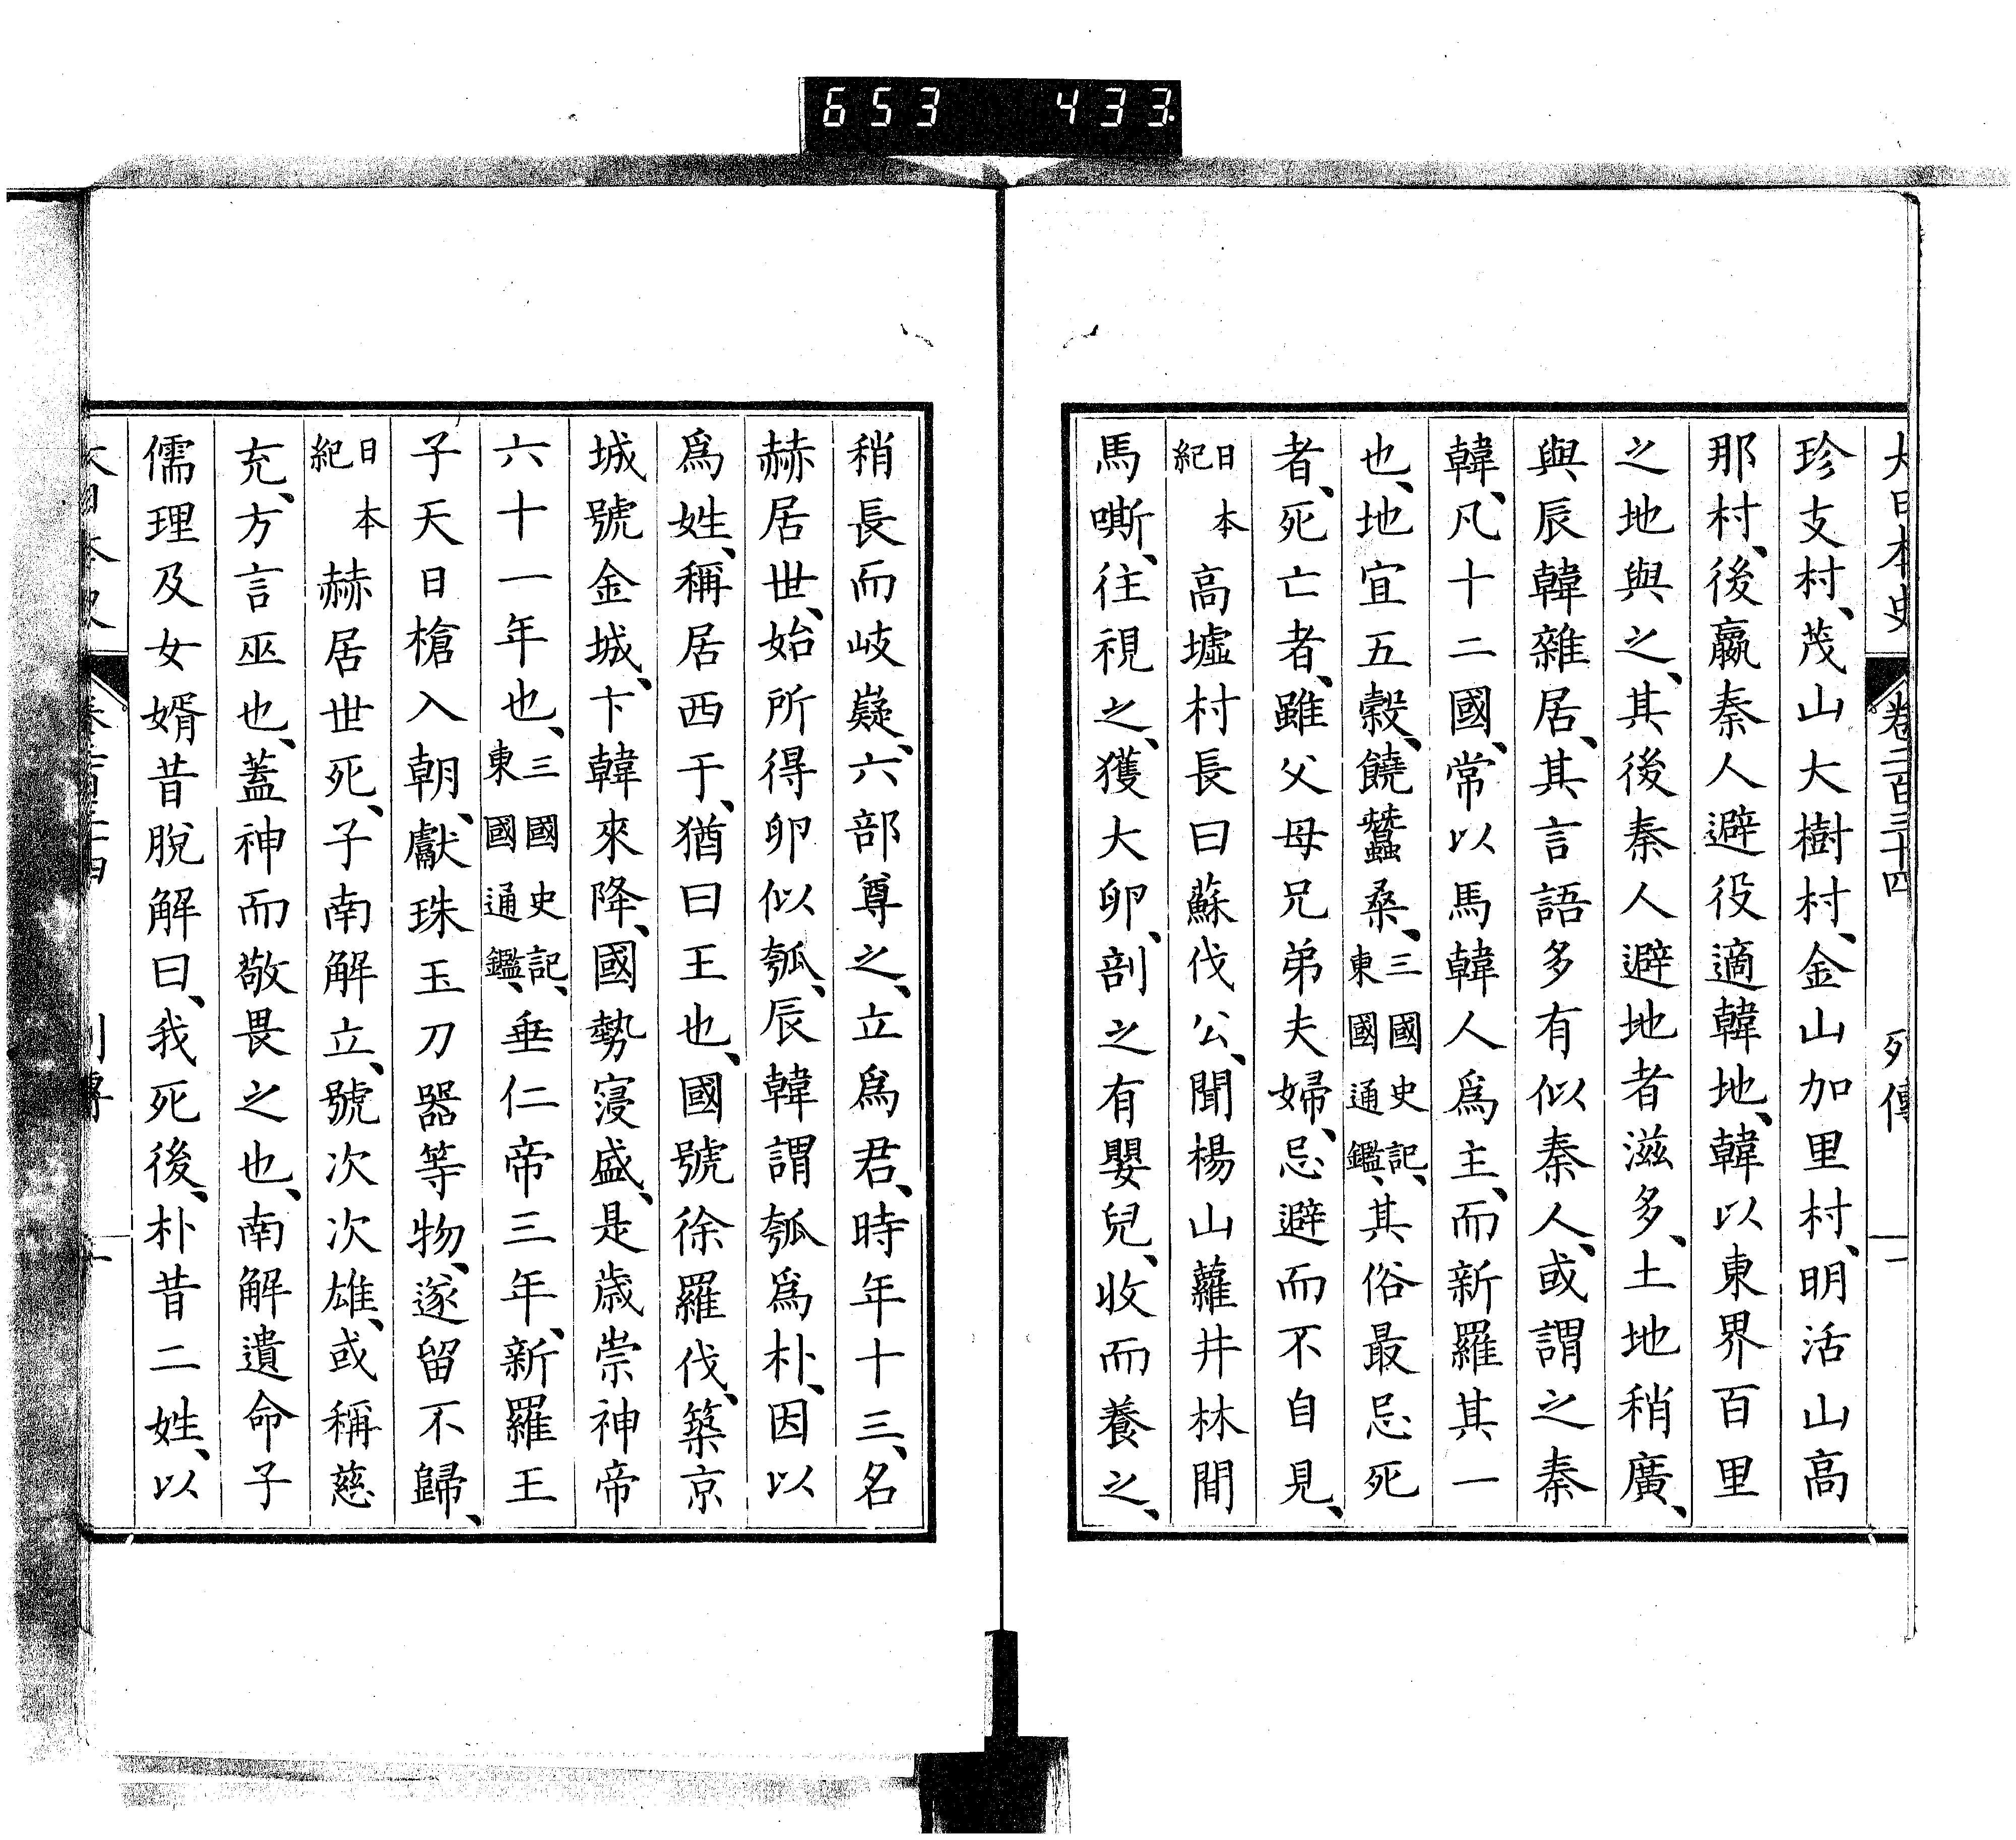 653 433
大日本史 卷二百三十四 列傳
珍支村、茂山大樹村、金山加里村、明活山高
那村、後嬴秦人避役適韓地、韓以東界百里
之地與之、其後秦人避地者滋多、土地稍廣、
與辰韓雜居、其言語多有似秦人、或謂之秦
韓、凡十二國、常以馬韓人爲主、而新羅其一
也、地宜五穀、饒蠶桑、三國史記、東國通鑑、其俗最忌死
者、死亡者、雖父母兄弟夫婦、忌避而不自見、
日本紀 高墟村長曰蘇伐公、聞楊山蘿井林間
馬嘶、往視之、獲大卵、剖之有嬰兒、收而養之、
稍長而岐嶷、六部尊之、立爲君、時年十三、名
赫居世、始所得卵似瓠、辰韓謂瓠爲朴、因以
爲姓、稱居西于、猶曰王也、國號徐羅伐、築京
城號金城、卞韓來降、國勢寖盛、是歲崇神帝
六十一年也、三國史記、東國通鑑、垂仁帝三年、新羅王
子天日槍入朝、獻珠玉刀器等物、遂留不歸、
日本紀 赫居世死、子南解立、號次次雄、或稱慈
充、方言巫也、蓋神而敬畏之也、南解遺命子
儒理及女婿昔脫解曰、我死後、朴昔二姓、以